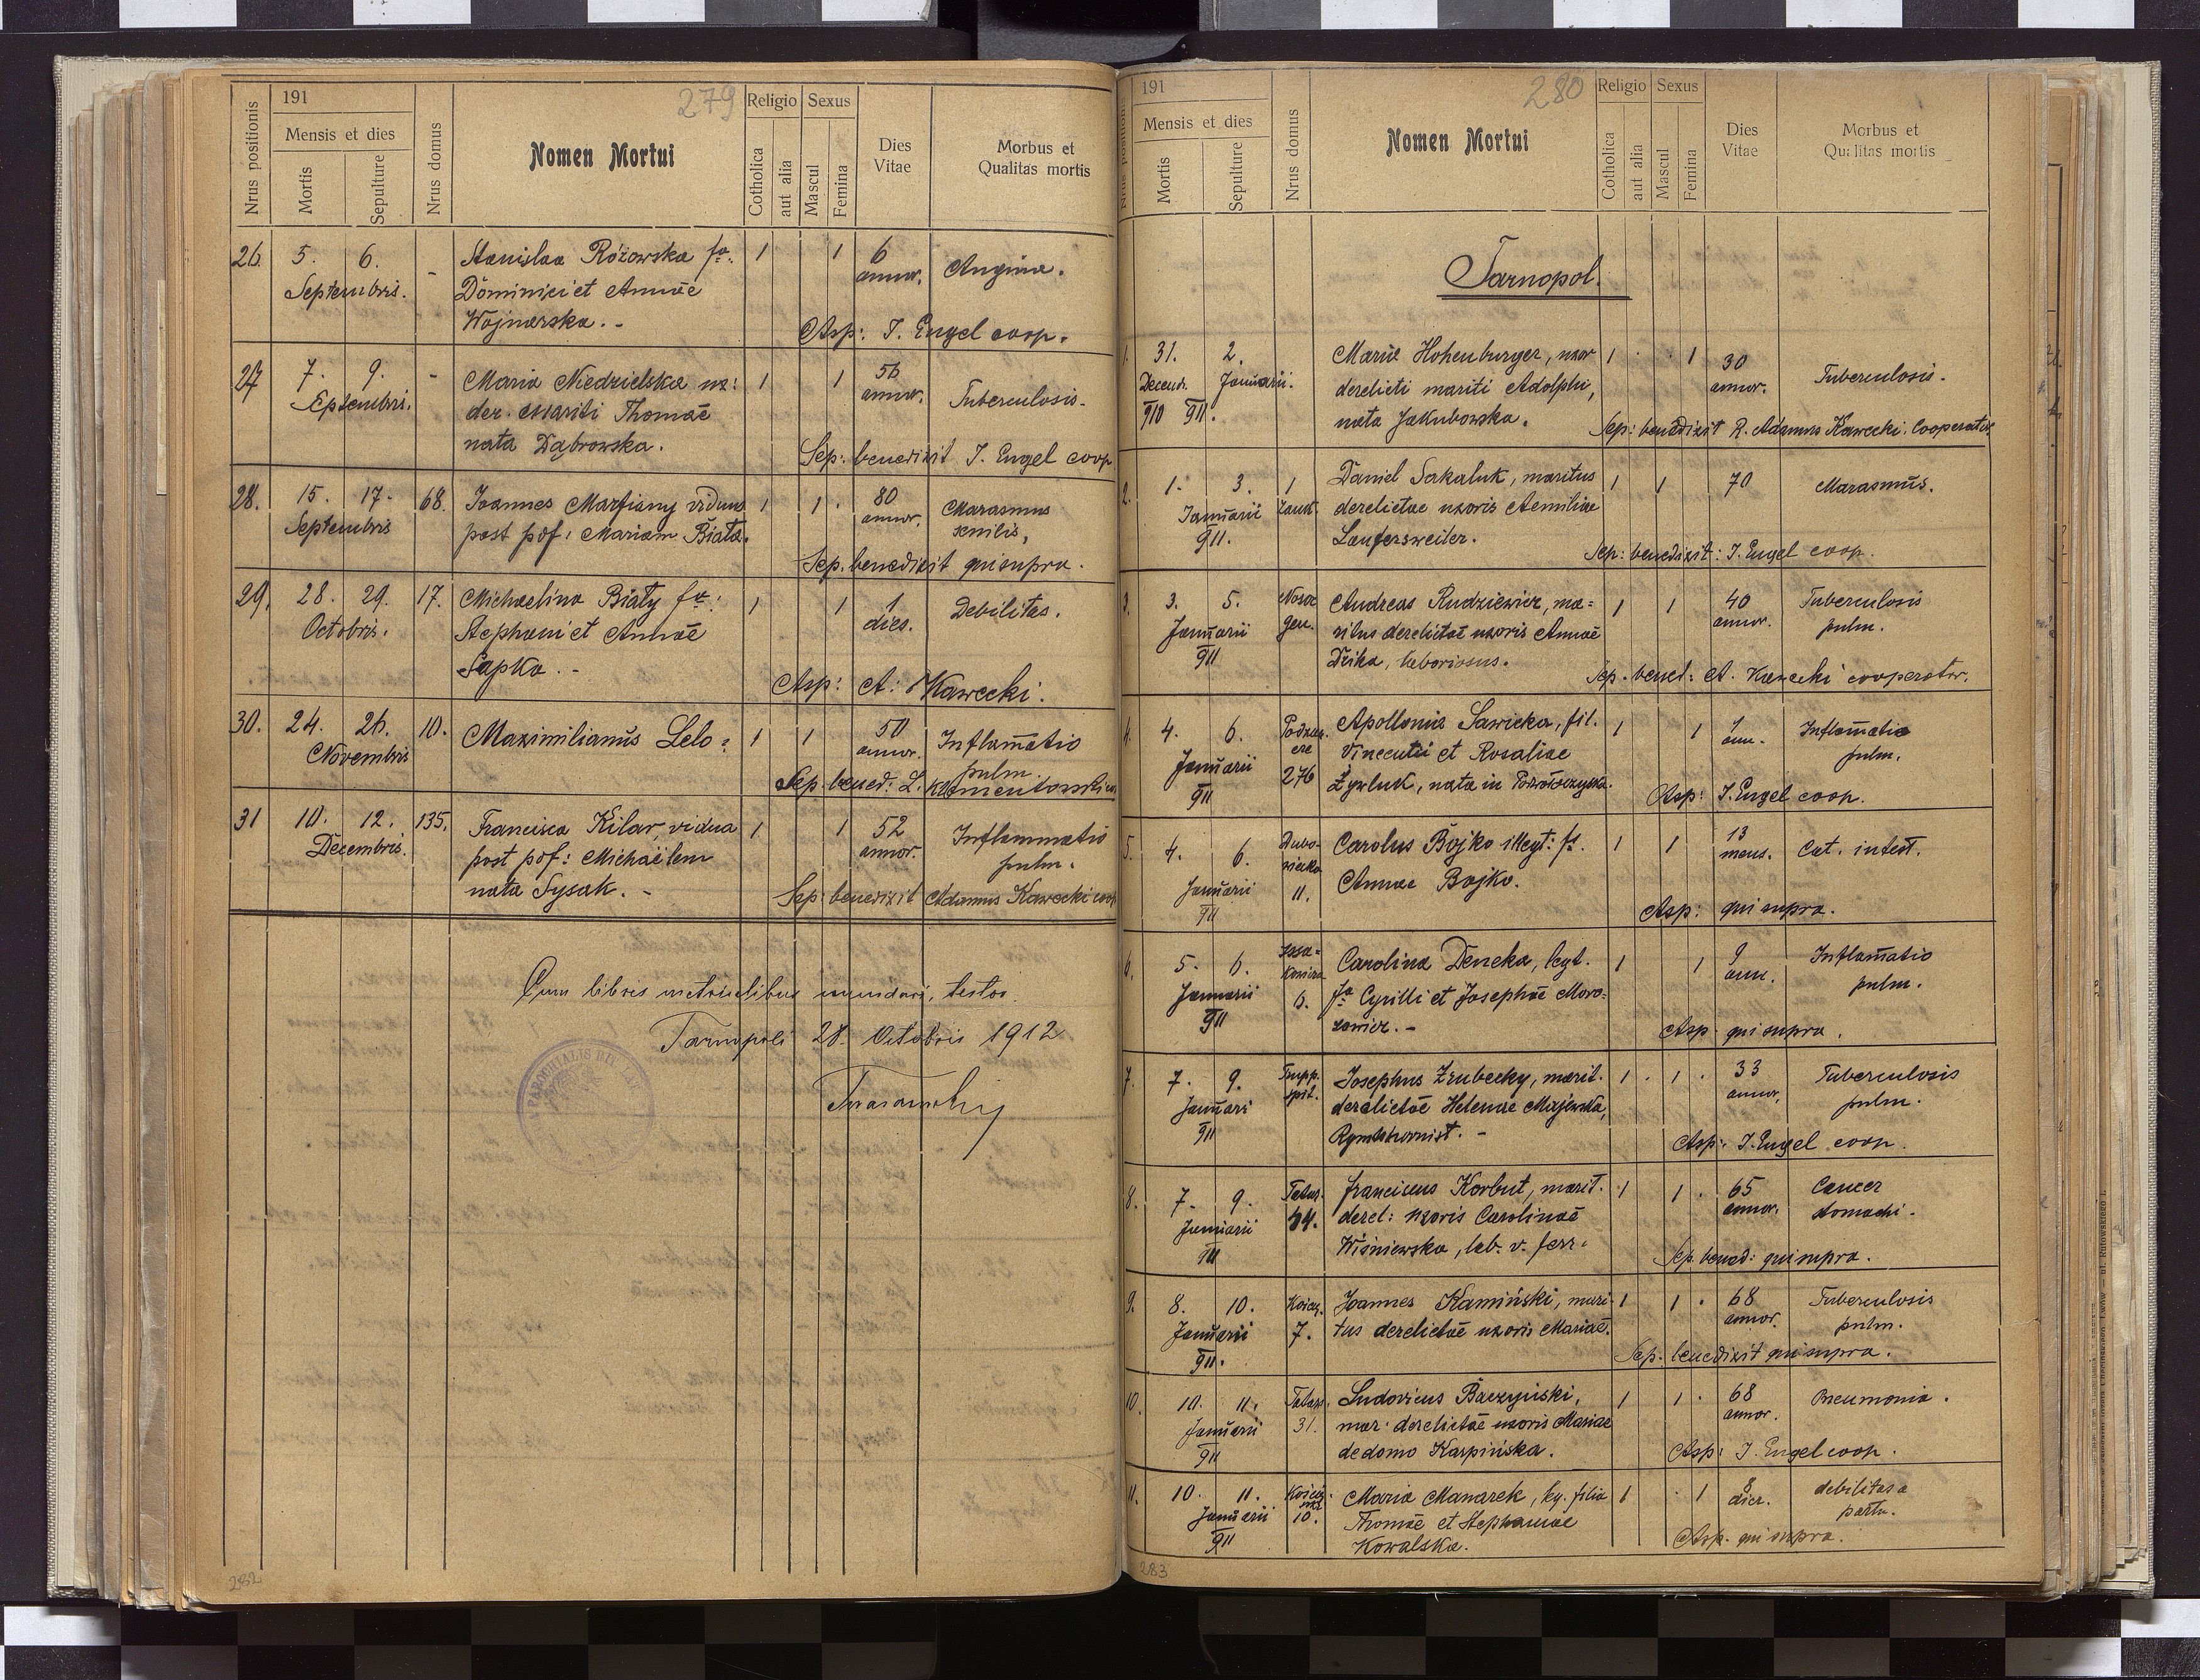 279
Nrus positionis
191
Mensis et dies
Mortis
Sepulture
Nrus domus
Nomen Mortui
Religio
Cotholica
aut alia
Sexus
Mascul
Femina
Dies Vitae
Morbus et
Qualitas mortis
26. 5. 6. - Stanislaa Różowska fa. 1 1 6 Angina.
Septembris. Dominici et Annae annor.
Wojnarska. -
Asp: J. Engel coop.
27 7. 9. - Maria Niedzielska ux: 1 1 56 Tuberculosis-
Septembris. der. mariti Thomae annor.
nata Dąbrowska.
Sep: benedixit J. Engel coop
28. 15. 17. 68. Joannes Marfiany viduus 1 1. 80 Marasmus
Septembris post pdf: Mariam Biała. annor. senilis,
Sep. benedixit qui supra.
29. 28. 29. 17. Michaelina Biały fa: 1 1 1 Debilitas.
Octobris. Stephani et Annae dies.
Sapka. -
Asp: A: Kawecki.
30. 24. 26. 10. Maximilianus Lelo: 1 1 50 Inflamatio
Novembris annor. pulm.
Sep. bened: L.
31 10. 12. 135. Francisca Kilar, vidua 1 1 52 Inflammatio
Decembris. post pdf: Michaëlem annor. pulm.
nata Sysak. -
Sep: benedixit Adamus Kawecki coop
Cum libris metricalibus mundari, testor.
Tarnopoli 28. Octobris 1912
PAROCHIALIS
282
280
Nrus positionis
191
Mensis et dies
Mortis
Sepulture
Nrus domus
Nomen Mortui
Religio
Cotholica
aut alia
Sexus
Mascul
Femina
Dies Vitae
Morbus et
Qualitas mortis
Tarnopol.
1. 31. 2. Maria Hohenburger, uxor 1 . . 1 30 Tuberculosis.
Decemb. Januarii. derelicti mariti Adolphi, annor.
910 911. nata Jakubowska.
Sep: benedixit R. Adamus Kawecki. Cooperator
2. 1. 3. 1 Daniel Sakaluk, maritus 1 1 70 Marasmus.
Januarii derelictae uxoris Aemiliae
911. Laufersweiler.
Sep: benedixit: J. Engel coop.
3. 3. 5. Andreas Rudziewicz, ma= 1 1 40 Tuberculosis
Januarii gen. ritus derelictae uxoris Annae annor. pulm.
911 Dzika, laboriosus.
Sep. bened: A. Kawecki cooperator.
4. 4. 6. Apollonia Sawicka, fil. 1 1 1 Inflamatio
Januarii Vincentii et Rosaliae ann. pulm.
911 276 Żywluk, nata in Podwołoczyska.
Asp: J. Engel coop.
5. 4. 6. Carolus Bojko illegt: fs. 1 1 13 Cat. intest.
Januarii Annae Bojko. mens.
911 11.
Asp: qui supra.
6. 5. 6. Carolina Deneka, legt. 1 1 9 Inflamatio
Januarii fa Cyrilli et Josephae Moro= ann. pulm.
911 6. zowicz. -
Asp. qui supra.
7. 7. 9. Trupp. Josephus Zrubecky, marit. 1 . 1 . 33 Tuberculosis
Januari spit. derelictae Helenae Majewska, annor. pulm.
911
Asp: J. Engel coop.
8. 7. 9. Tatar. Franciscus Korbut, marit. 1 1 . 65 Cancer
Januarii 44. derel: uxoris Carolinae annor. stomachi.
911 Wiśniewska, lab. v. ferr.
Sep. bened: qui supra.
9. 8. 10. Joannes Kamiński, mari- 1 1 . 68 Tuberculosis
Januarii 7. tus derelictae uxoris Mariae. annor. pulm.
911.
Sep. benedixit qui supra.
10. 10. 11. Tatar. Ludovicus Baczyński, 1 1 . 68 Pneumonia.
Januarii 31. mar. derelictae uxoris Mariae annor.
911 de domo Karpińska.
Asp: J. Engel coop.
11. 10. 11. Maria Manarek, leg. filia 1 . 1 8 debilitas a
Januarii 10. Thomae et Stephaniae dier. partu.
911 Kowalska.
Asp. qui supra.
283